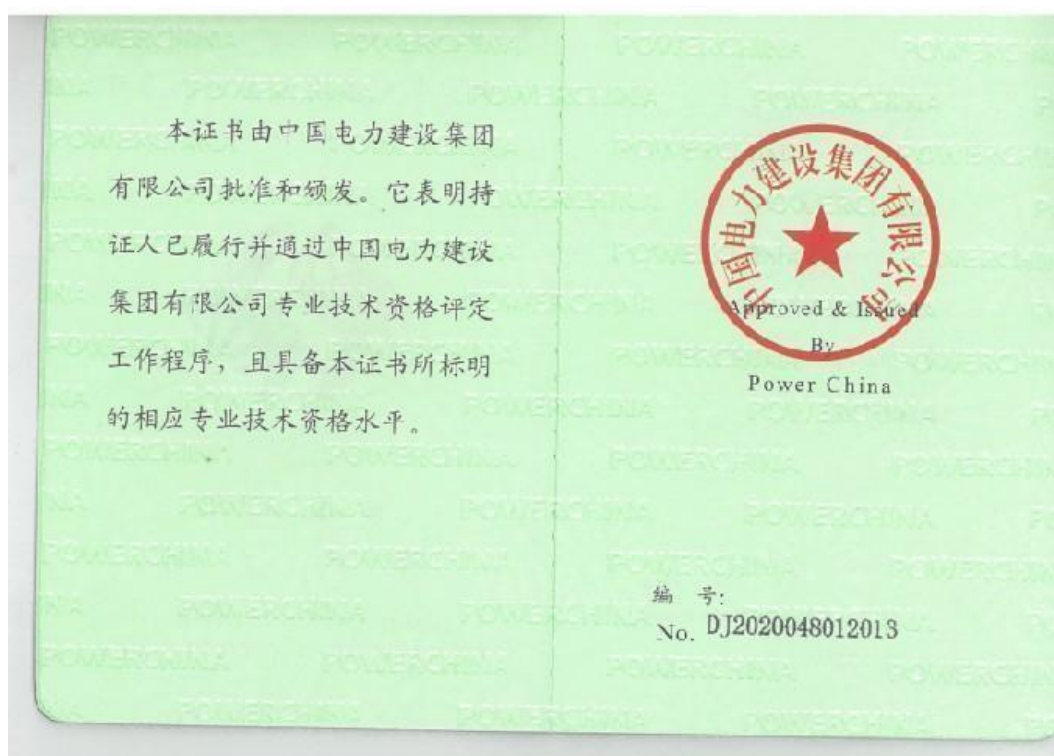 本证书由中国电力建设集团
有限公司批准和颁发。它表明持
证人已履行并通过中国电力建设
集团有限公司专业技术资格评定
工作程序，且具备本证书所标明
的相应专业技术资格水平。
中国电力建设集团有限公司
Approved & Issued
By
Power China
编 号:
No. DJ2020048012013